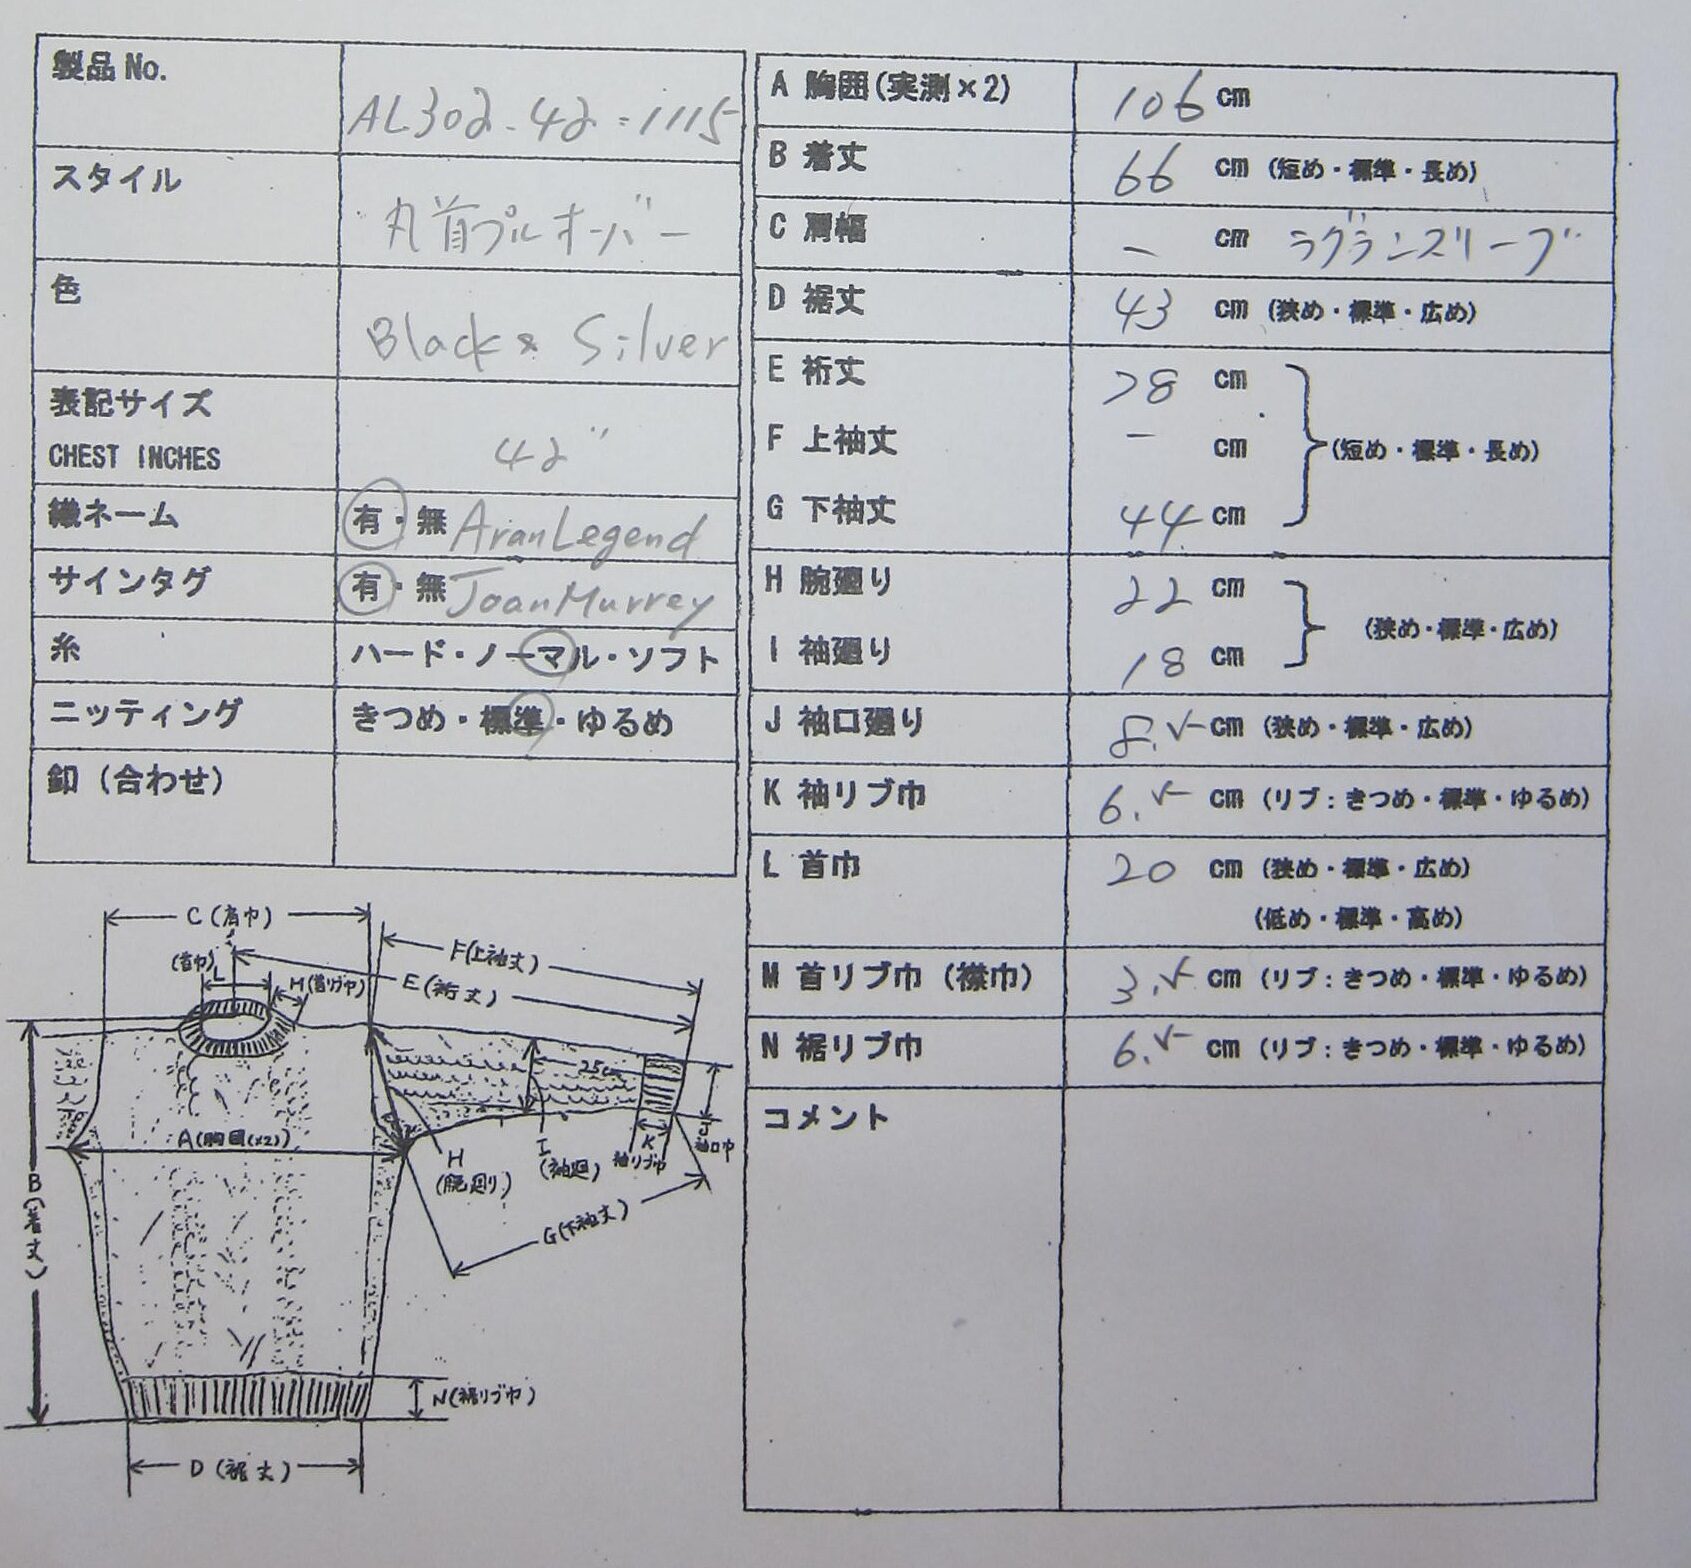 製品 No.
AL302-42-1115
スタイル
丸首プルオーバー
色
Black × Silver
表記サイズ
CHEST INCHES
42"
織ネーム 有・無 AranLegend
サインタグ 有・無 JoanMurrey
糸 ハード・ノーマル・ソフト
ニッティング きつめ・標準・ゆるめ
釦（合わせ）
A 胸囲(実測×2) 106 cm
B 着丈 66 cm (短め・標準・長め)
C 肩幅 — cm ラグランスリーブ
D 裾丈 43 cm (狭め・標準・広め)
E 裄丈 78 cm
F 上袖丈 — cm (短め・標準・長め)
G 下袖丈 44 cm
H 腕廻り 22 cm
(狭め・標準・広め)
I 袖廻り 18 cm
J 袖口廻り 8.5 cm (狭め・標準・広め)
K 袖リブ巾 6.5 cm (リブ：きつめ・標準・ゆるめ)
L 首巾 20 cm (狭め・標準・広め)
(低め・標準・高め)
M 首リブ巾（襟巾） 3.5 cm (リブ：きつめ・標準・ゆるめ)
N 裾リブ巾 6.5 cm (リブ：きつめ・標準・ゆるめ)
コメント
C (肩巾)
F(上袖丈)
(首巾)
L
M(首リブ巾)
E (裄丈)
25cm
A(胸囲(×2))
H
(腕廻り)
I
(袖廻)
K
袖リブ巾
J
袖口巾
B(着丈)
G(下袖丈)
N(裾リブ巾)
D (裾丈)